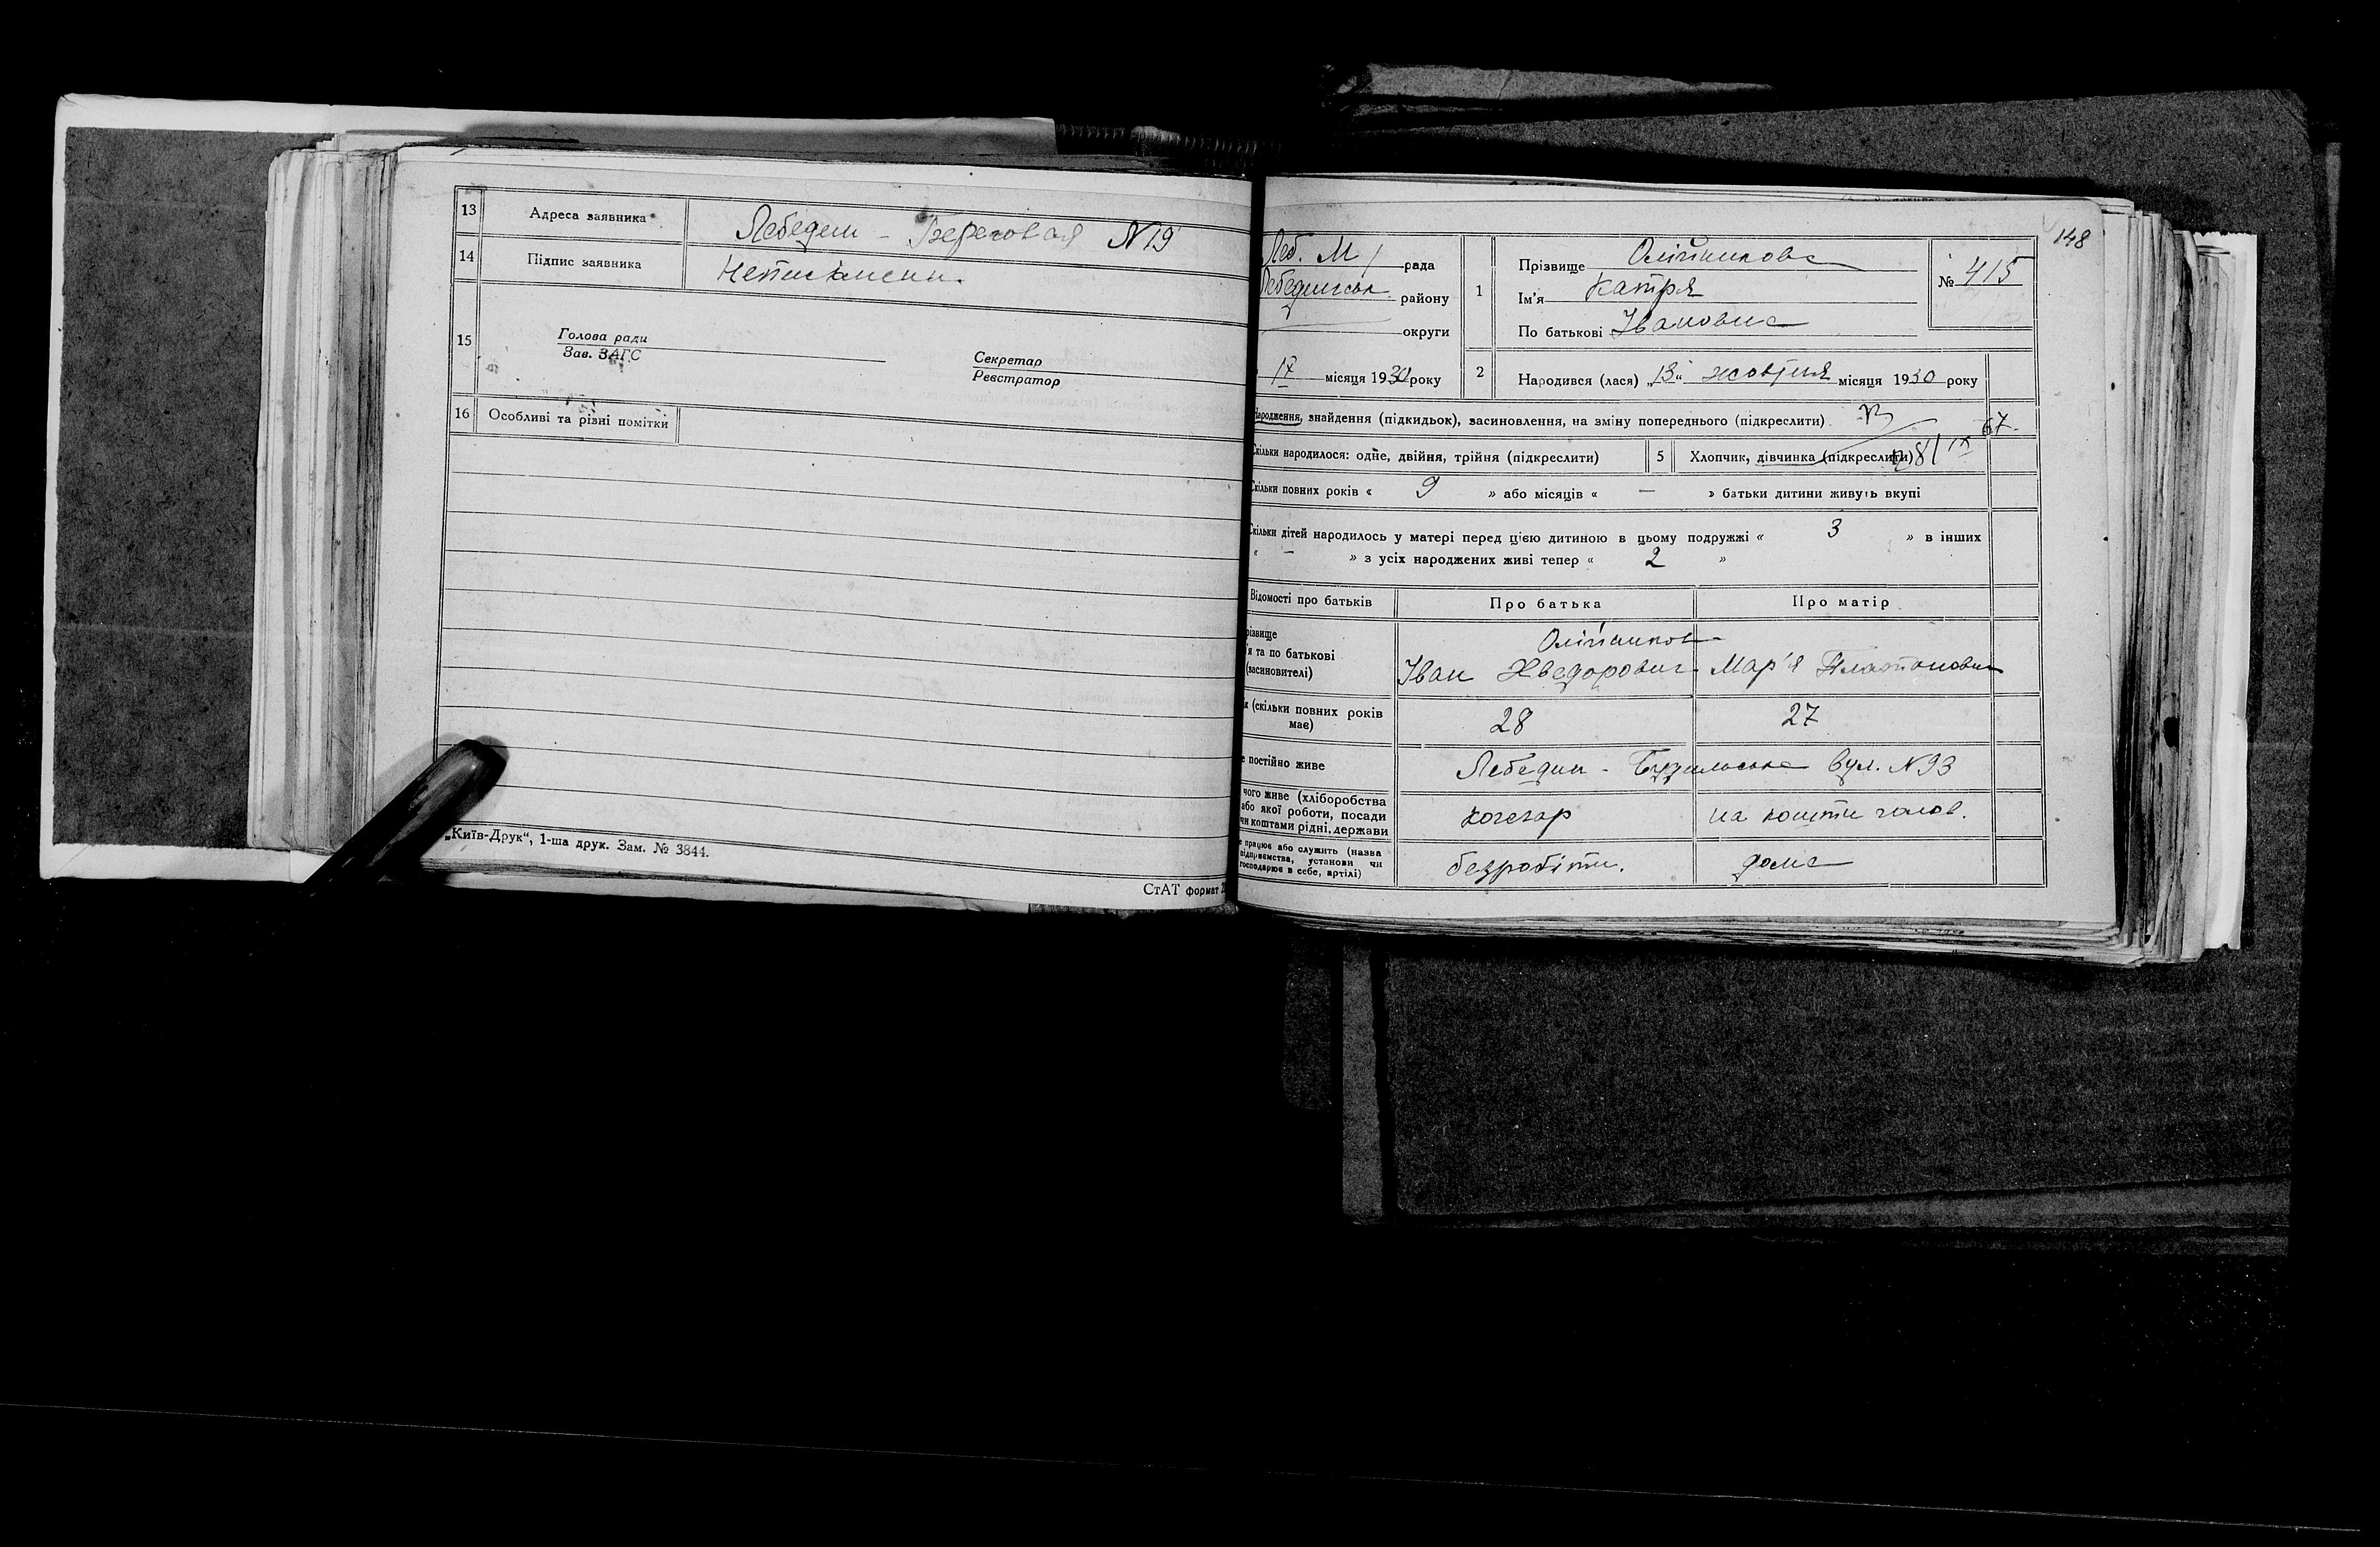 13 Адреса заявника Лебедин - Береговая N 19
14 Підпис заявника Неписьменн.
15 Голова ради
Зав. ЗАГС
Секретар
Реєстратор
16 Особливі та різні помітки
„Київ-Друк“, 1-ша друк. Зам. № 3844.
СтАТ формат
148
Леб. М рада
Лебединськ району
округи
1 Прізвище Олійникова
Ім'я Катря
По батькові Івановна
№ 415
IX місяця 1930 року
2 Народився (лася) „13“ жовтня місяця 1930 року
Народження, знайдення (підкидьок), засиновлення, на зміну попереднього (підкреслити)
67.
Скільки народилося: одне, двійня, трійня (підкреслити) 5 Хлопчик, дівчинка (підкреслити)
Скільки повних років « 9 » або місяців « — » батьки дитини живуть вкупі
Скільки дітей народилось у матері перед цією дитиною в цьому подружжі « 3 » в інших
« — » з усіх народжених живі тепер « 2 »
Відомості про батьків Про батька Про матір
різвище
'я та по батькові
(засиновителі)
Олійников
Іван Хведорович Мар'я Платоновна
(скільки повних років
має)
28 27
е постійно живе Лебедин - Будильська вул. N 93
чого живе (хліборобства
або якої роботи, посади
чи коштами рідні, держави
кочегар на кошти чолов.
е працює або служить (назва
підприємства, установи чи
господарює в себе, артілі)
безробітн. дома